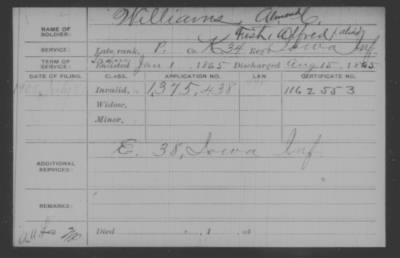 Williams, Almond C.
NAME OF SOLDIER:
Fish, Alfred (alias)
SERVICE: Late rank, P. Co. K 34 Reg't Iowa Inf.
TERM OF SERVICE: Enlisted Jan 1, 1865 Discharged Aug 15, 1865
DATE OF FILING. CLASS. APPLICATION NO. LAW. CERTIFICATE NO.
Invalid, 1,375,438 1162553
Widow,
Minor,
E. 38, Iowa Inf.
ADDITIONAL SERVICES:
REMARKS:
Died , 1 , at